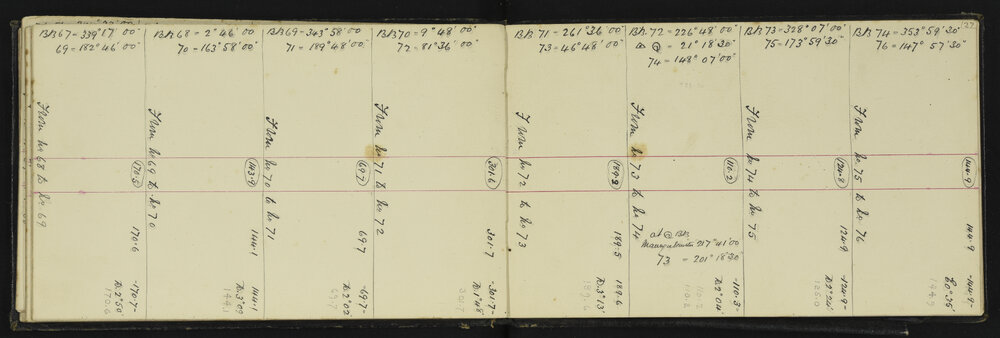 BK 67 = 339° 17' 00"
69 = 182° 46' 00"
From No 68 to No 69
170.5
170.6
-170.7-
D. 2° 50'
170.6
BK 68 = 2° 46' 00"
70 = 163° 58' 00"
From No 69 to No 70
143.9
144.1
144.1
D. 3° 02'
144.1
BK 69 = 343° 58' 00"
71 = 189° 48' 00"
From No 70 to No 71
69.7
69.7
-69.7-
D. 2° 02'
69.7
BK 70 = 9° 48' 00"
72 = 81° 36' 00"
From No 71 to No 72
301.6
301.7
-301.7-
D. 1° 48'
301.7
BK 71 = 261° 36' 00"
73 = 46° 48' 00"
From No 72 to No 73
189.3
189.5
189.6
D. 3° 13'
189.6
BK 72 = 226° 48' 00"
= 21° 18' 30"
74 = 148° 07' 00"
From No 73 to No 74
at BK
217° 41' 00"
73 = 201° 18' 30"
110.2
-110.3-
D. 2° 04'
110.2
110.2
BK 73 = 328° 07' 00"
75 = 173° 59' 30"
From No 74 to No 75
124.8
124.9
-124.9-
D. 2° 24'
125.0
BK 74 = 353° 59' 30"
76 = 147° 57' 30"
From No 75 to No 76
144.9
144.9
-144.9-
0° 35'
144.9
37